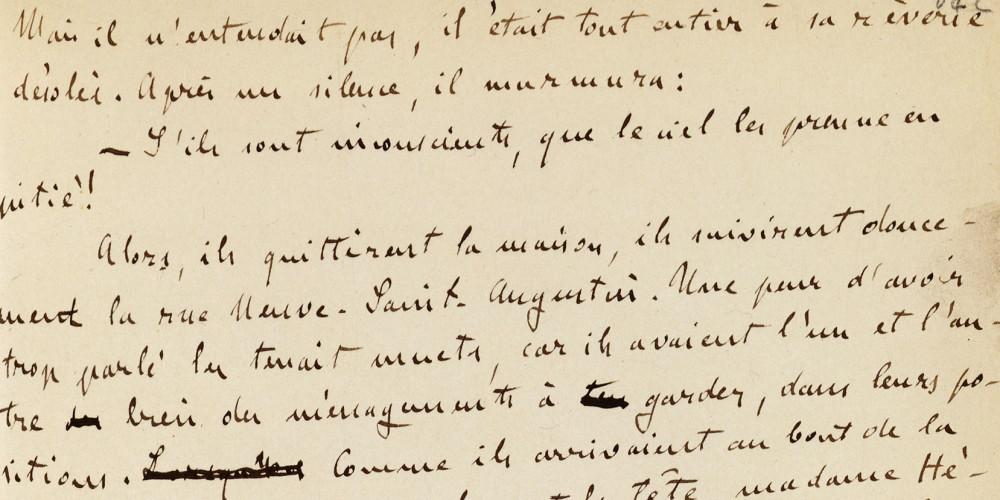 Mais il n'entendait pas, il était tout entier à sa rêverie
désolée. Après un silence, il murmura :
— S'ils sont inconscients, que le ciel les prenne en
pitié !
Alors, ils quittèrent la maison, ils suivirent douce-
ment la rue Neuve-Saint-Augustin. Une peur d'avoir
trop parlé les tenait muets, car ils avaient l'un et l'au-
tre bien des ménagements à garder, dans leurs po-
sitions. Comme ils arrivaient au bout de la
tête, madame Hé-